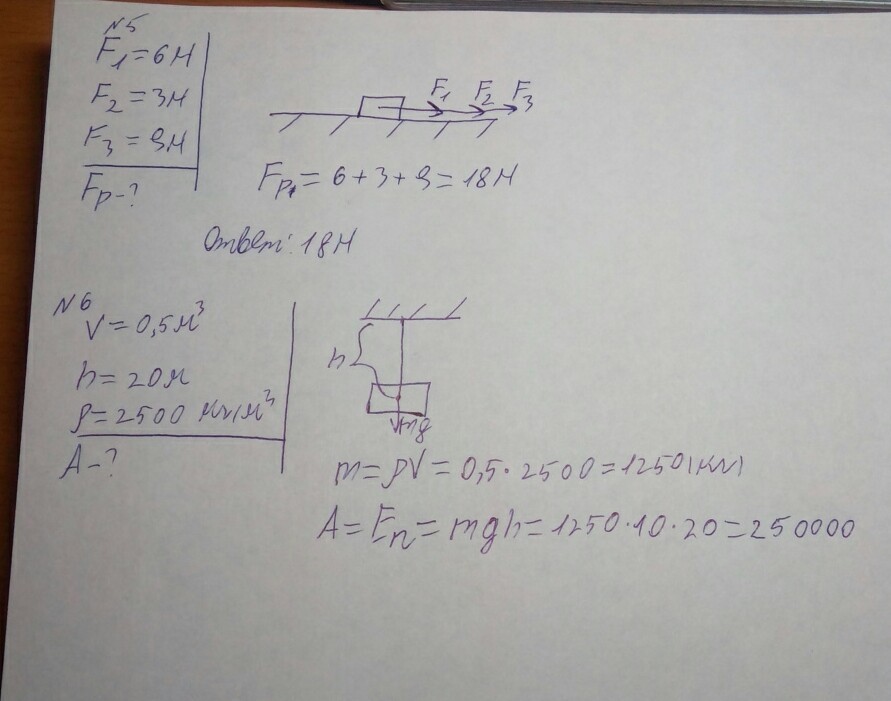 №5
F₁=6Н
F₂=3Н
F₃=9Н
Fр-?
F₁ F₂ F₃
Fр₁=6+3+9=18Н
Ответ: 18Н
№6
V=0,5м³
h=20м
ρ=2500 кг/м³
A-?
h
mg
m=ρV=0,5·2500=1250(кг)
A=Eп=mgh=1250·10·20=250000